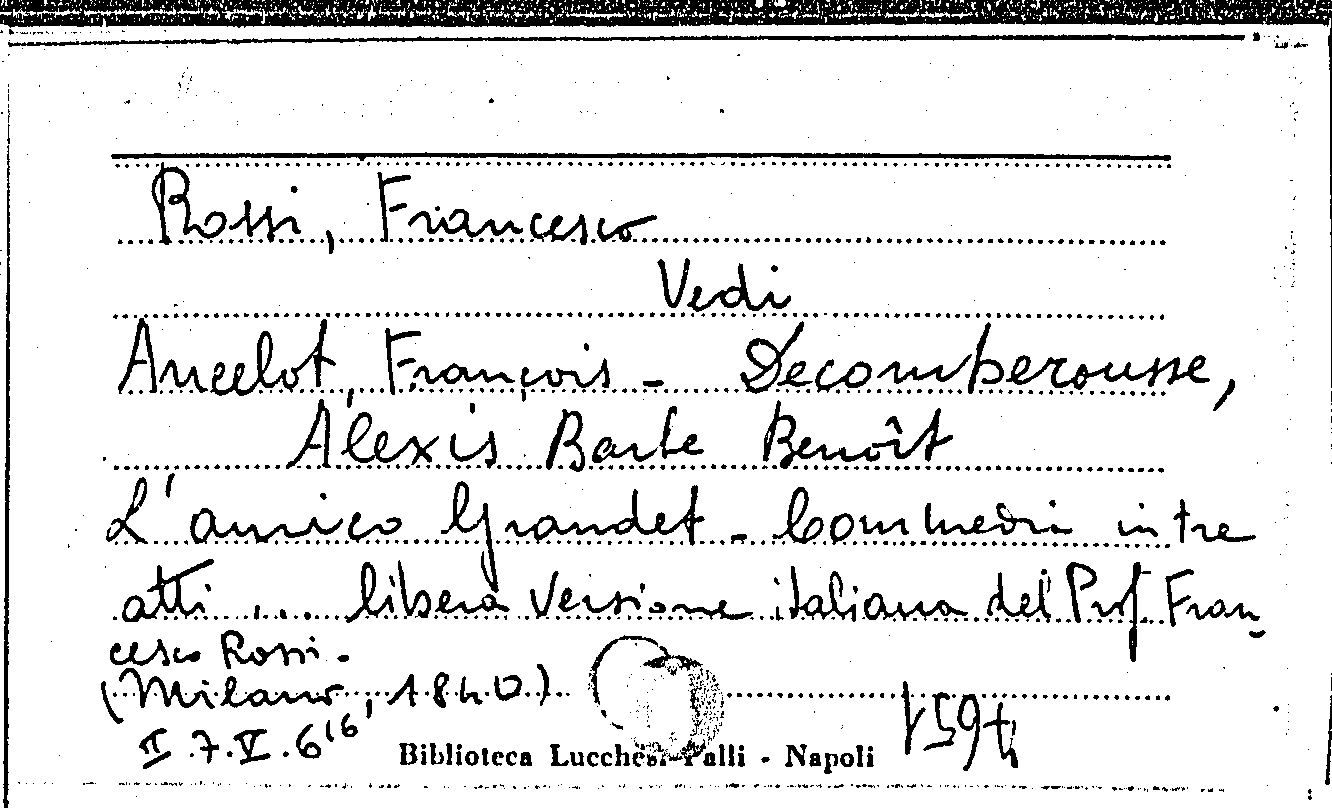 Rossi, Francesco
Vedi
Ancelot, François - Decomberousse,
Alexis Barbe Benoît
L'amico Grandet - Commedia in tre
atti ... libera versione italiana del Prof. Fran-
cesco Rossi.
(Milano, 1840)
II.7.V.6(6
Biblioteca Lucchesi-Palli - Napoli